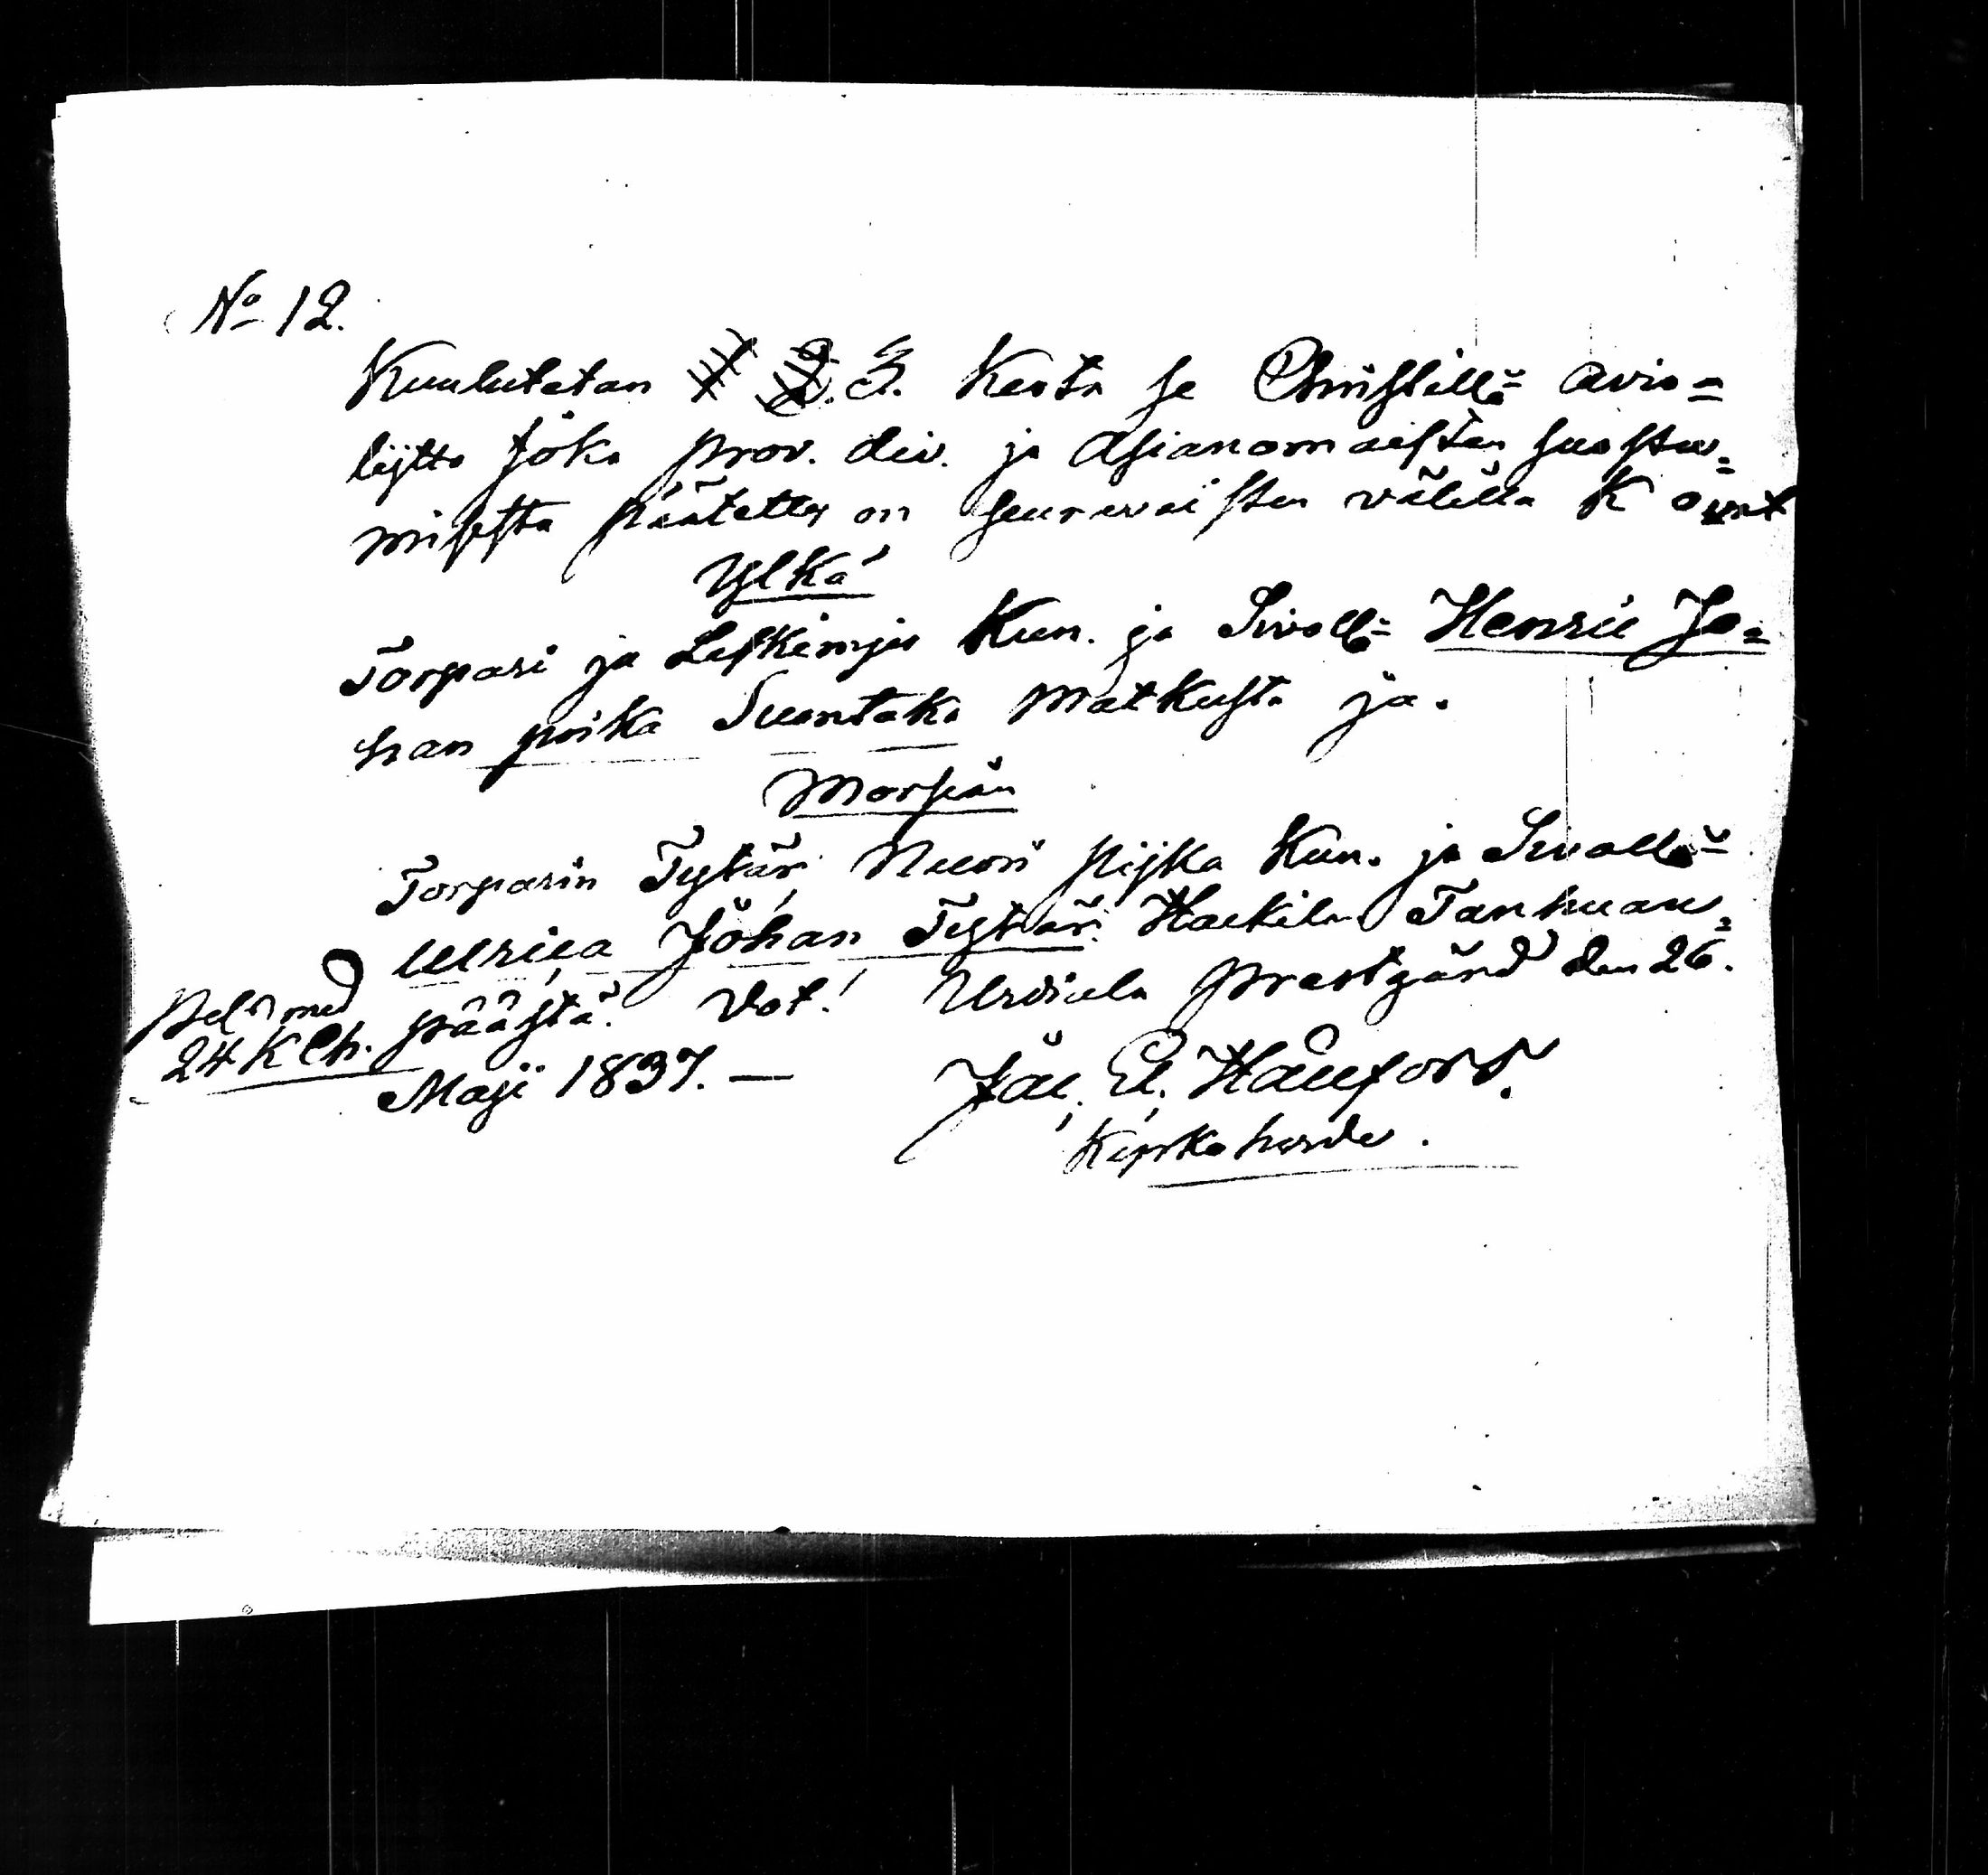 No 12.
Kuulutetan 1 2. 3. Kerta se Christill= avio=
lijtto joka prov. div. ja Asianomaisten suostu=
misesta päätetty on seurawaisten välillä K owat
Ylkä
Torpari ja Leskimjes Kun. ja Sivoll= Henric Jo=
han poika Suontaka Matkusta ja.
Morsian
Torparin Tytär, Nuori pijka Kun. ja Sivoll=
Ulrica Johan Tytär Tanhuan=
päästä. Vot! Urdiala Prestgård den 26.
Maji 1837. —
med
24 K
Jac. Ed.
Kirkoherda.